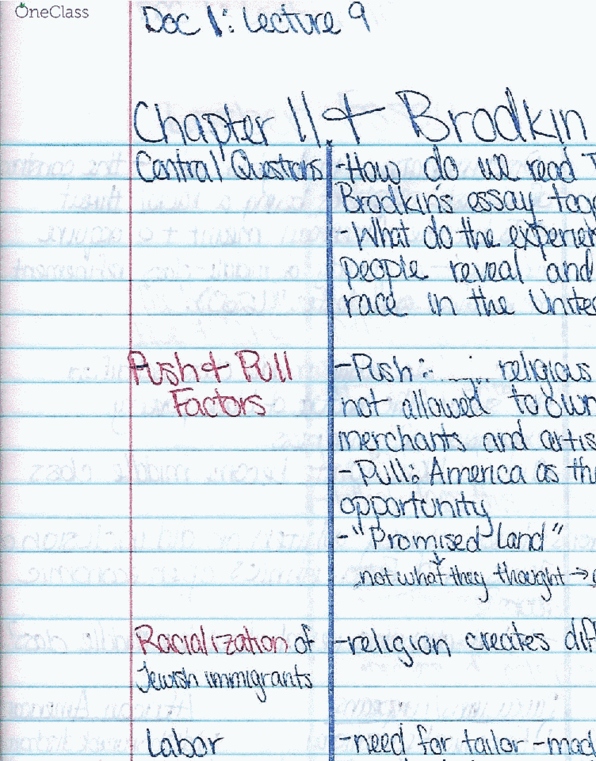 OneClass
Doc 1: Lecture 9
Chapter 11 + Brodkin
Central Questions -How do we read T
Brodkin's essay toge
-What do the experien
people reveal and
race in the Unite
Push + Pull -Push: religious
Factors not allowed to own
merchants and artis
-Pull: America as th
opportunity
-"Promised Land"
not what they thought →
Racialization of -religion creates dif
Jewish immigrants
Labor -need for tailor-mad